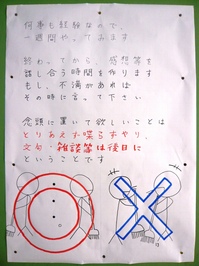 何事も経験なので、
一週間やってみます
終わってから、感想等を
話し合う時間を作ります
もし、不満があれば
その時に言って下さい
念頭に置いて欲しいことは
とりあえず喋らずやり、
文句・雑談等は後日に
ということです